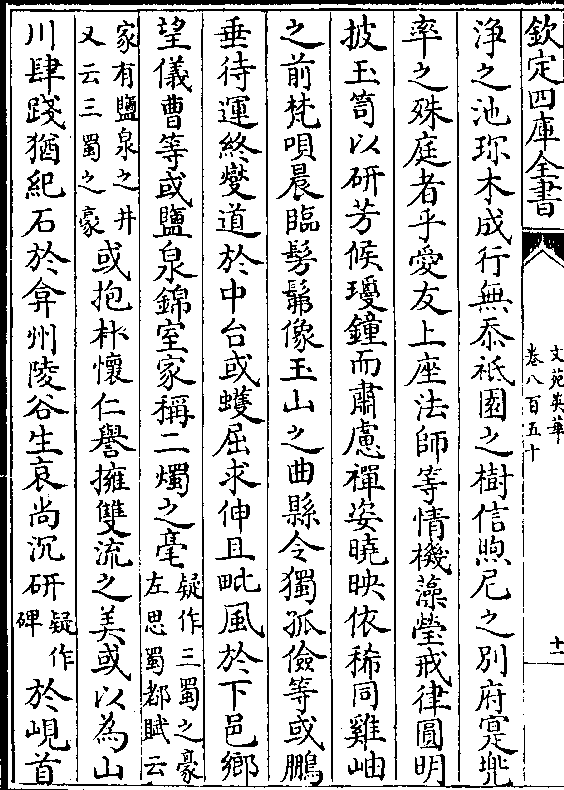 欽定四庫全書
文苑英華
卷八百五十
十一
浄之池珎木成行無忝祇園之樹信煦尼之別府寔兠
率之殊庭者乎爰友上座法師等情機藻瑩戒律圓明
披玉笥以研芳候瓊鐘而肅慮禪姿曉映依稀同雞岫
之前梵唄晨臨髣髴像玉山之曲縣令獨孤儉等或鵬
垂待運終變道於中台或蠖屈求伸且毗風於下邑鄉
望儀曹等或鹽泉錦室家稱二燭之毫疑作三蜀之豪左思蜀都賦云
家有鹽泉之井又云三蜀之豪或抱朴懷仁譽擁雙流之美或以為山
川肆踐猶紀石於弇州陵谷生哀尚沉研疑作碑於峴首